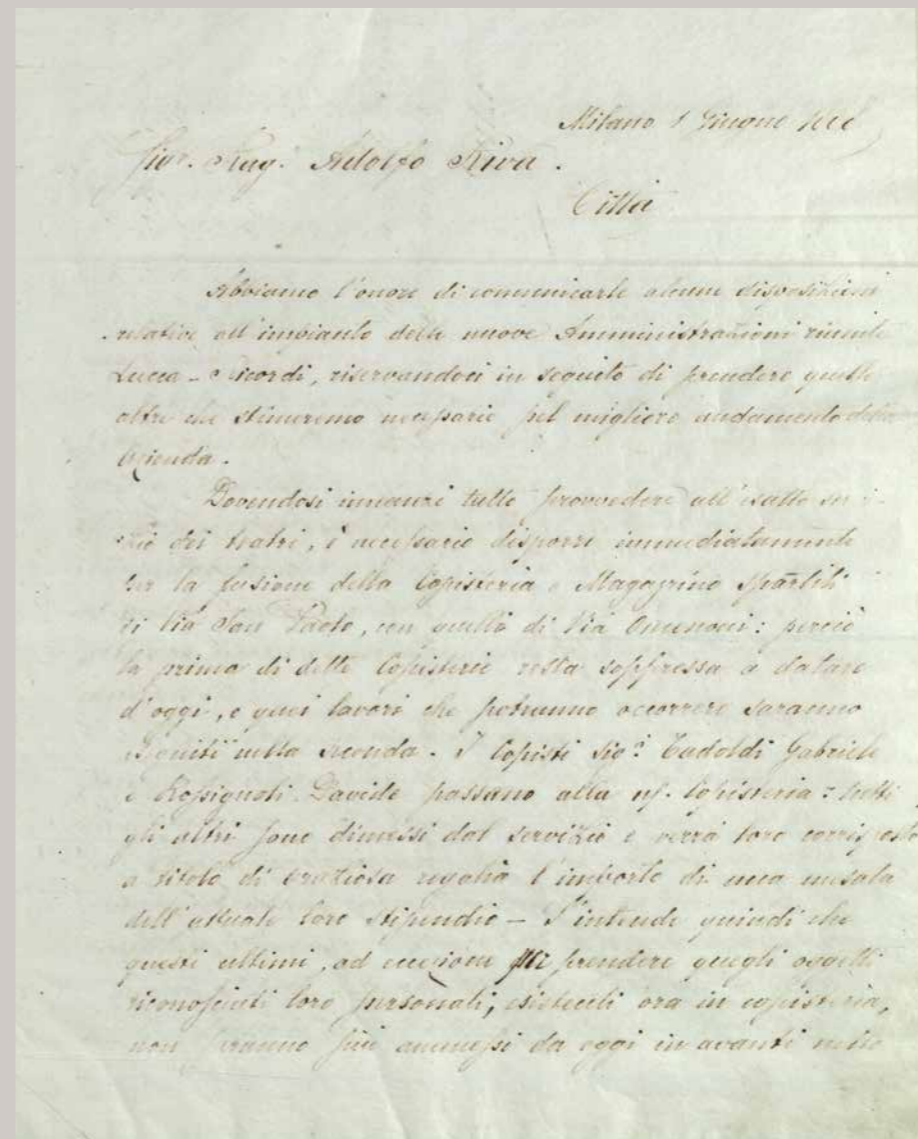 Milano 1 Giugno
Sigr. Rag. Adolfo Riva.
Città
Abbiamo l'onore di comunicarle alcune disposizioni
relative all'impianto delle nuove Amministrazioni riunite
Lucca - Ricordi, riservandoci in seguito di prendere quelle
altre che stimeremo necessarie pel migliore andamento della
Azienda.
Dovendosi innanzi tutto provvedere all'esatto servi-
zio dei teatri, è necessario disporre immediatamente
per la fusione della Copisteria e Magazzino spartiti
di Via San Paolo, con quella di Via Omenoni: perciò
la prima di dette Copisterie resta soppressa a datare
d'oggi, e quei lavori che potranno occorrere saranno
eseguiti nella seconda. I Copisti Sigi Gabriele
e Rossignoli Davide passano alla ns. Copisteria: tutti
gli altri sono dimessi dal servizio e verrà loro corrisposto
a titolo di graziosa regalia l'importo di una mesata
dell'attuale loro stipendio - S'intende quindi che
questi ultimi, ad eccezione di prendere quegli oggetti
riconosciuti loro personali, esistenti ora in copisteria,
non saranno più ammessi da oggi in avanti nello